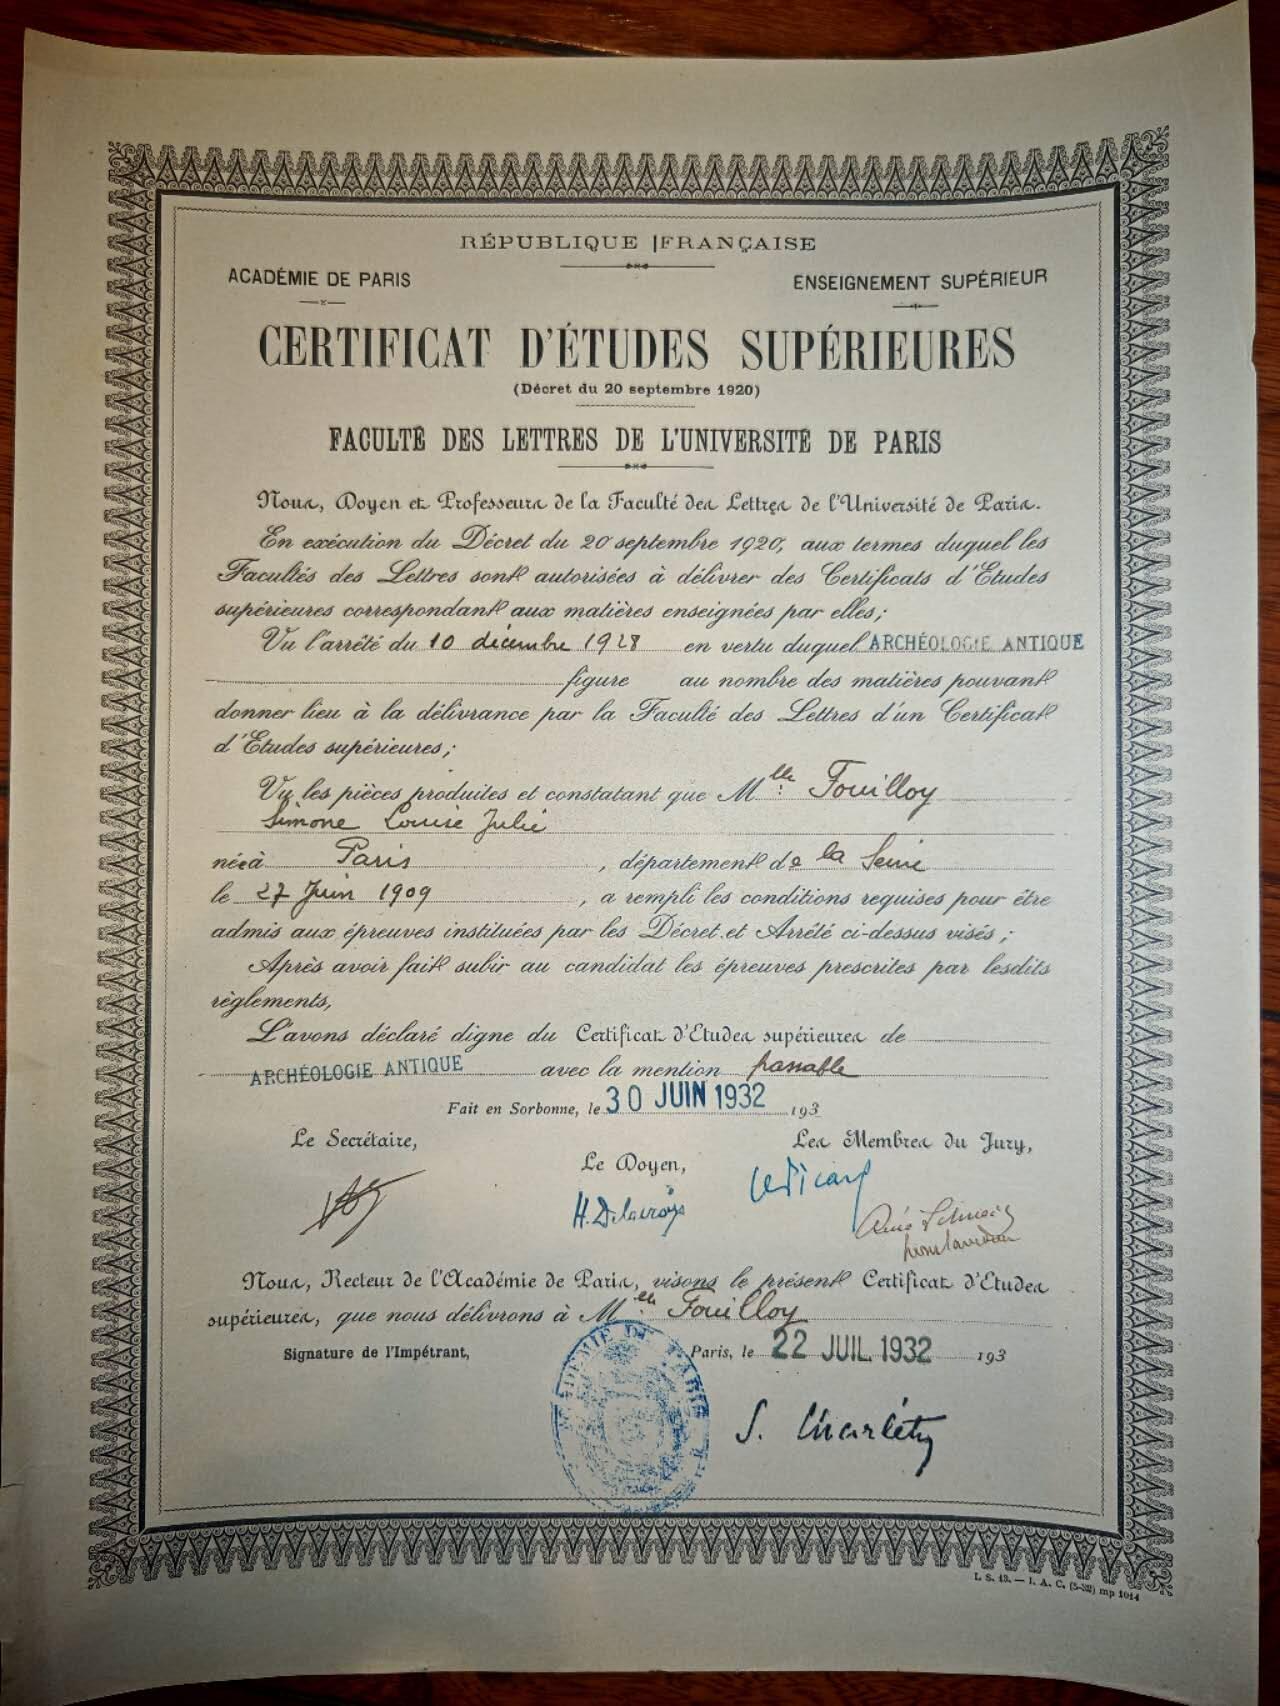 RÉPUBLIQUE FRANÇAISE
ACADÉMIE DE PARIS
ENSEIGNEMENT SUPÉRIEUR
CERTIFICAT D'ÉTUDES SUPÉRIEURES
(Décret du 20 septembre 1920)
FACULTÉ DES LETTRES DE L'UNIVERSITÉ DE PARIS
Nous, Doyen et Professeurs de la Faculté des Lettres de l'Université de Paris.
En exécution du Décret du 20 septembre 1920, aux termes duquel les
Facultés des Lettres sont autorisées à délivrer des Certificats d'Etudes
supérieures correspondant aux matières enseignées par elles;
Vu l'arrêté du 10 décembre 1928 en vertu duquel ARCHÉOLOGIE ANTIQUE
figure au nombre des matières pouvant
donner lieu à la délivrance par la Faculté des Lettres d'un Certificat
d'Etudes supérieures;
Vu les pièces produites et constatant que Mlle Fouilloy
Simone Louise Julie
née à Paris, département de la Seine
le 27 Juin 1909, a rempli les conditions requises pour être
admis aux épreuves instituées par les Décret et Arrêté ci-dessus visés;
Après avoir fait subir au candidat les épreuves prescrites par lesdits
règlements,
L'avons déclaré digne du Certificat d'Etudes supérieures de
ARCHÉOLOGIE ANTIQUE avec la mention passable
Fait en Sorbonne, le 30 JUIN 1932 193
Le Secrétaire,
Le Doyen,
Les Membres du Jury,
H. Delacroix
Ch Picard
Nous, Recteur de l'Académie de Paris, visons le présent Certificat d'Etudes
supérieures, que nous délivrons à Mlle Fouilloy
Signature de l'Impétrant,
Paris, le 22 JUIL. 1932 193
ACADÉMIE DE PARIS
S. Charléty
L. S. 13. — I. A. C. (5-32) mp 1014